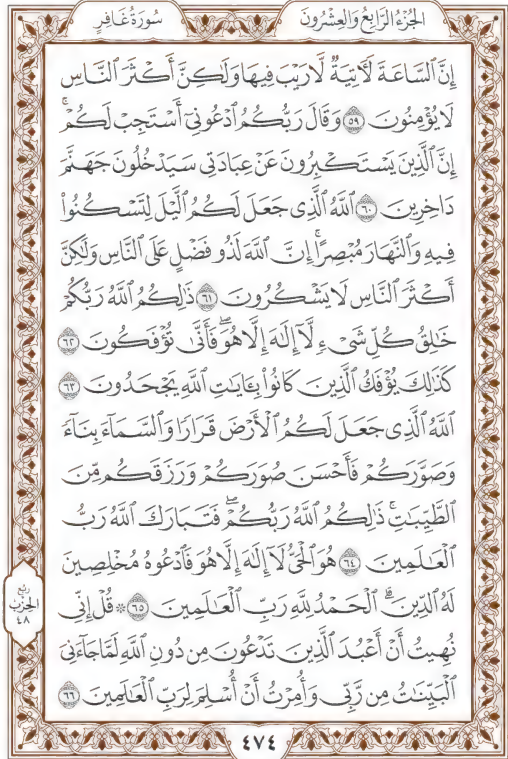 سُورَةُ غَافِرٍ
الجُزْءُ الرَّابِعُ وَالعِشْرُونَ
إِنَّ ٱلسَّاعَةَ لَأٓتِيَةٌ لَّا رَيْبَ فِيهَا وَلَٰكِنَّ أَكْثَرَ ٱلنَّاسِ
لَا يُؤْمِنُونَ ٥٩ وَقَالَ رَبُّكُمُ ٱدْعُونِيٓ أَسْتَجِبْ لَكُمْۚ
إِنَّ ٱلَّذِينَ يَسْتَكْبِرُونَ عَنْ عِبَادَتِي سَيَدْخُلُونَ جَهَنَّمَ
دَاخِرِينَ ٦٠ ٱللَّهُ ٱلَّذِي جَعَلَ لَكُمُ ٱلَّيْلَ لِتَسْكُنُوا۟
فِيهِ وَٱلنَّهَارَ مُبْصِرًاۚ إِنَّ ٱللَّهَ لَذُو فَضْلٍ عَلَى ٱلنَّاسِ وَلَٰكِنَّ
أَكْثَرَ ٱلنَّاسِ لَا يَشْكُرُونَ ٦١ ذَٰلِكُمُ ٱللَّهُ رَبُّكُمْ
خَٰلِقُ كُلِّ شَيْءٍ لَّآ إِلَٰهَ إِلَّا هُوَۖ فَأَنَّىٰ تُؤْفَكُونَ ٦٢
كَذَٰلِكَ يُؤْفَكُ ٱلَّذِينَ كَانُوا۟ بِـَٔايَٰتِ ٱللَّهِ يَجْحَدُونَ ٦٣
ٱللَّهُ ٱلَّذِي جَعَلَ لَكُمُ ٱلْأَرْضَ قَرَارًا وَٱلسَّمَآءَ بِنَآءً
وَصَوَّرَكُمْ فَأَحْسَنَ صُوَرَكُمْ وَرَزَقَكُم مِّنَ
ٱلطَّيِّبَٰتِۚ ذَٰلِكُمُ ٱللَّهُ رَبُّكُمْۖ فَتَبَارَكَ ٱللَّهُ رَبُّ
ٱلْعَٰلَمِينَ ٦٤ هُوَ ٱلْحَيُّ لَآ إِلَٰهَ إِلَّا هُوَ فَٱدْعُوهُ مُخْلِصِينَ
لَهُ ٱلدِّينَۗ ٱلْحَمْدُ لِلَّهِ رَبِّ ٱلْعَٰلَمِينَ ٦٥ ۞ قُلْ إِنِّي
نُهِيتُ أَنْ أَعْبُدَ ٱلَّذِينَ تَدْعُونَ مِن دُونِ ٱللَّهِ لَمَّا جَآءَنِيَ
ٱلْبَيِّنَٰتُ مِن رَّبِّي وَأُمِرْتُ أَنْ أُسْلِمَ لِرَبِّ ٱلْعَٰلَمِينَ ٦٦
ربع
الحزب
٤٨
٤٧٤